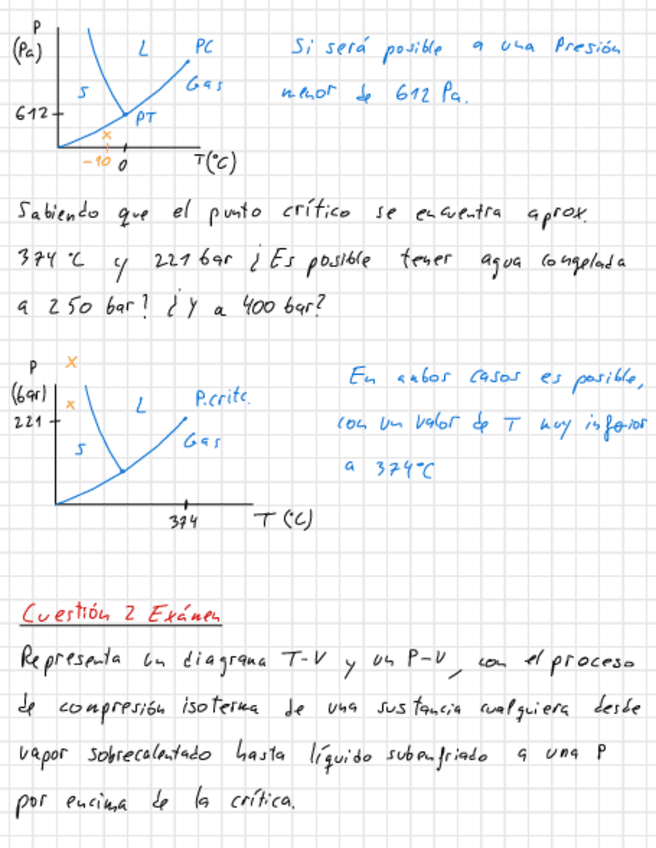 P
(Pa)
L
PC
Si será posible a una Presión
S
Gas
menor de 612 Pa.
612
PT
x
-10
0
T(°C)
Sabiendo que el punto crítico se encuentra aprox.
374 °C y 221 bar ¿Es posible tener agua congelada
a 250 bar? ¿Y a 400 bar?
P
x
(bar)
x
L
P.crítc.
En ambos casos es posible,
221
con un valor de T muy inferior
S
Gas
a 374°C
374
T (°C)
Cuestión 2 Exámen
Representa un diagrama T-V y un P-V, con el proceso
de compresión isoterma de una sustancia cualquiera desde
vapor sobrecalentado hasta líquido subenfriado a una P
por encima de la crítica.